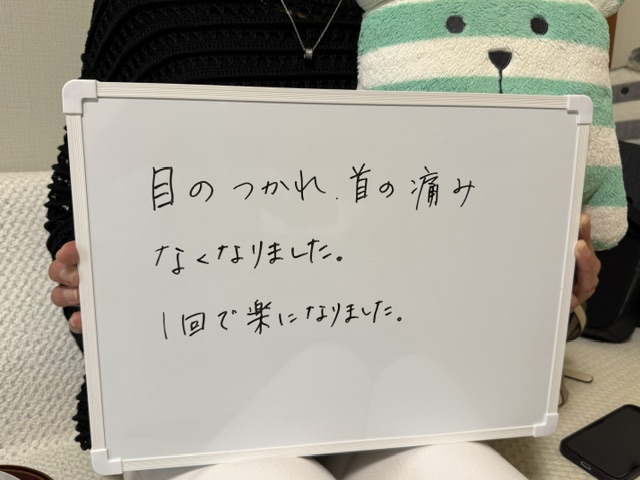 目のつかれ.首の痛み
なくなりました。
1回で楽になりました。